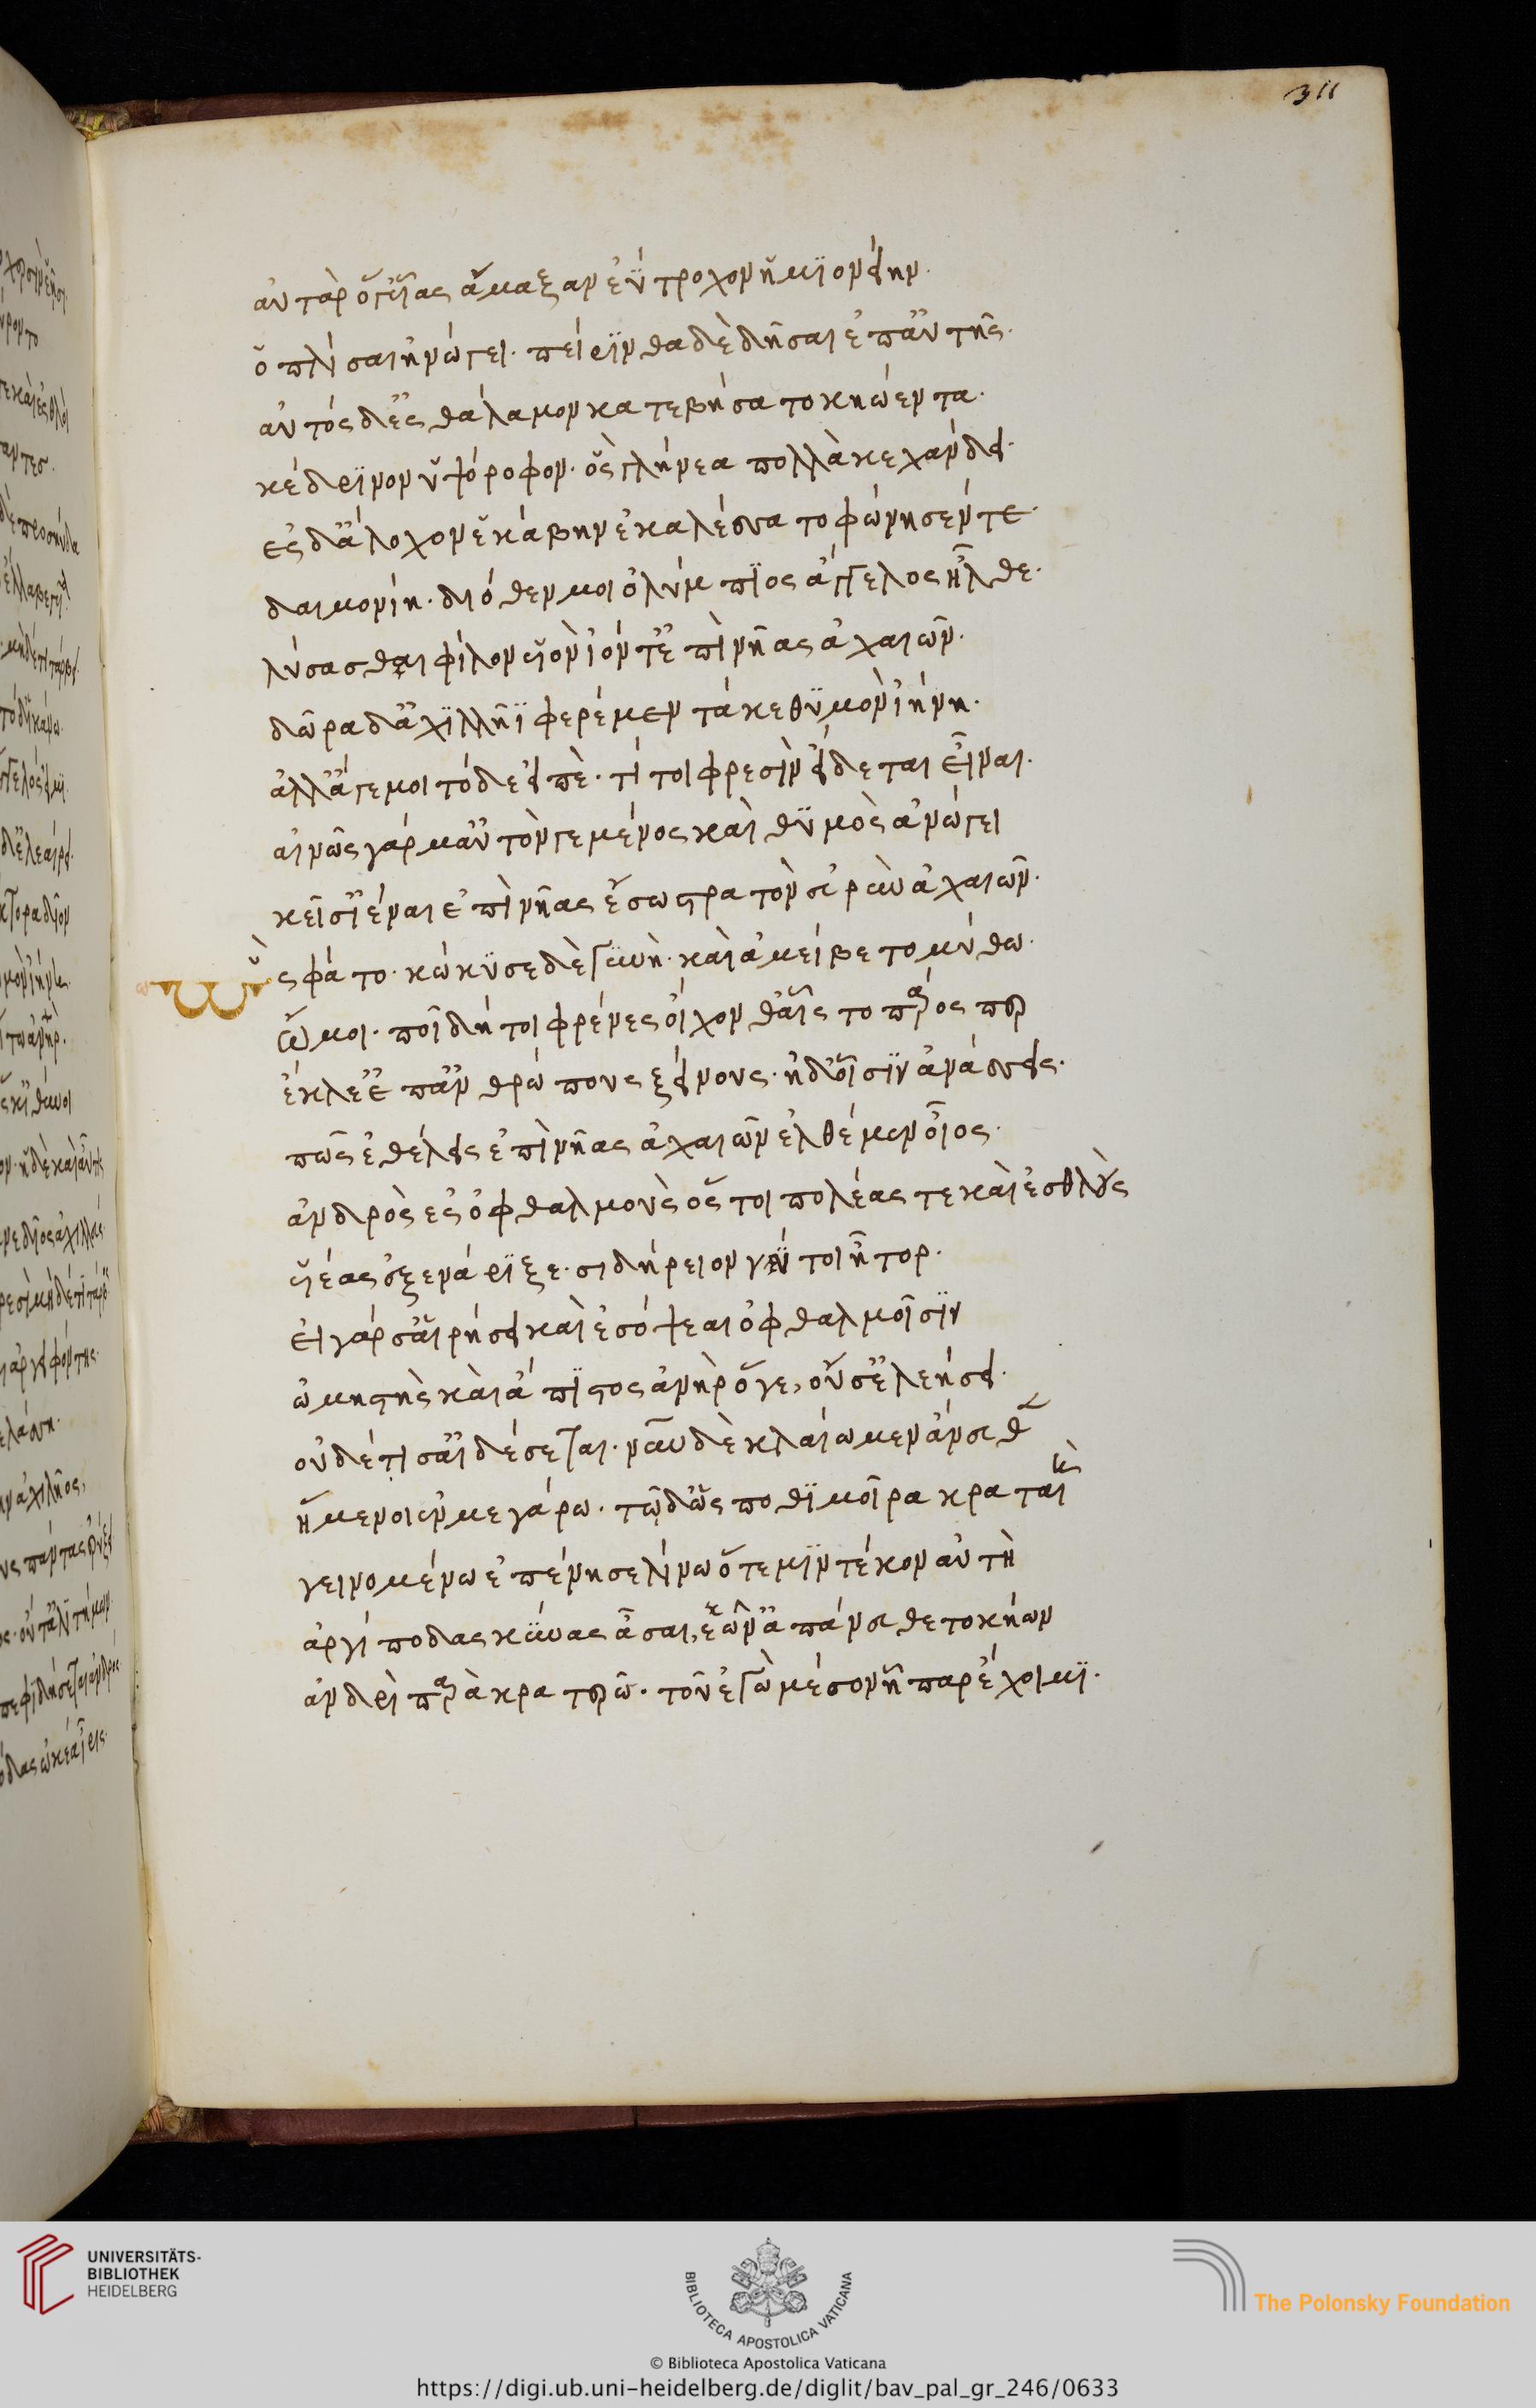 311
αὐτὰρ ὅγ' υἷας ἅμαξαν ἐΰτροχον ἡμιονείην.
ὁπλίσαι ἠνώγει. πείρινθα δὲ δῆσαι ἐπ' αὐτῆς.
αὐτὸς δ' ἐς θάλαμον κατεβήσατο κηώεντα.
κέδρινον ὑψόροφον. ὃς γλήνεα πολλὰ κεχάνδει.
ἐς δ' ἄλοχον ἑκάβην ἐκαλέσσατο φώνησέν τε.
δαιμονίη. διόθεν μοι ὀλύμπϊος ἄγγελος ἦλθε.
λύσασθαι φίλον υἱὸν ἰόντ' ἐπὶ νῆας ἀχαιῶν.
δῶρα δ' ἀχϊλλῆϊ φερέμεν τά κε θϋμὸν ἰήνη.
ἀλλ' ἄγε μοι τόδε εἰπὲ. τί τοι φρεσὶν εἴδεται εἶναι.
αἰνῶς γάρ μ' αὐτόν γε μένος καὶ θϋμὸς ἀνώγει
κεῖσ' ἰέναι ἐπὶ νῆας ἔσω στρατὸν εὐρὺν ἀχαιῶν.
ὣς φάτο. κώκϋσε δὲ γϋνὴ. καὶ ἀμείβετο μύθω.
ὤ μοι. πῆ δή τοι φρένες οἴχονθ' ἧς τὸ πάρος περ
ἔκλε' ἐπ' ἀνθρώπους ξείνους. ἠδ' οἷσϊν ἀνάσσεις.
πῶς ἐθέλεις ἐπὶ νῆας ἀχαιῶν ἐλθέμεν οἶος.
ἀνδρὸς ἐς ὀφθαλμοὺς ὅς τοι πολέας τε καὶ ἐσθλοὺς
υἱέας ἐξενάριξε. σιδήρειόν νύ τοι ἦτορ.
εἰ γάρ σ' αἱρήσει καὶ ἐσόψεαι ὀφθαλμοῖσϊν
ὠμηστὴς καὶ ἄπϊστος ἀνὴρ ὅγε, οὔ σ' ἐλεήσει.
οὐδέ τί σ' αἰδέσεται. νῦν δὲ κλαίωμεν ἄνευθεν
ἥμενοι ἐν μεγάρω. τῷ δ' ὥς ποθϊ μοῖρα κραταιὴ
γεινομένω ἐπένησε λίνω ὅτε μϊν τέκον αὐτὴ
ἀργίποδας κύνας ἆσαι, ἑῶν ἀπάνευθε τοκήων
ἀνδρὶ πάρα κρατερῶ. τοῦ ἐγὼ μέσον ἧπαρ ἔχοιμϊ.
UNIVERSITÄTS-
BIBLIOTHEK
HEIDELBERG
BIBLIOTECA APOSTOLICA VATICANA
The Polonsky Foundation
© Biblioteca Apostolica Vaticana
https://digi.ub.uni-heidelberg.de/diglit/bav_pal_gr_246/0633